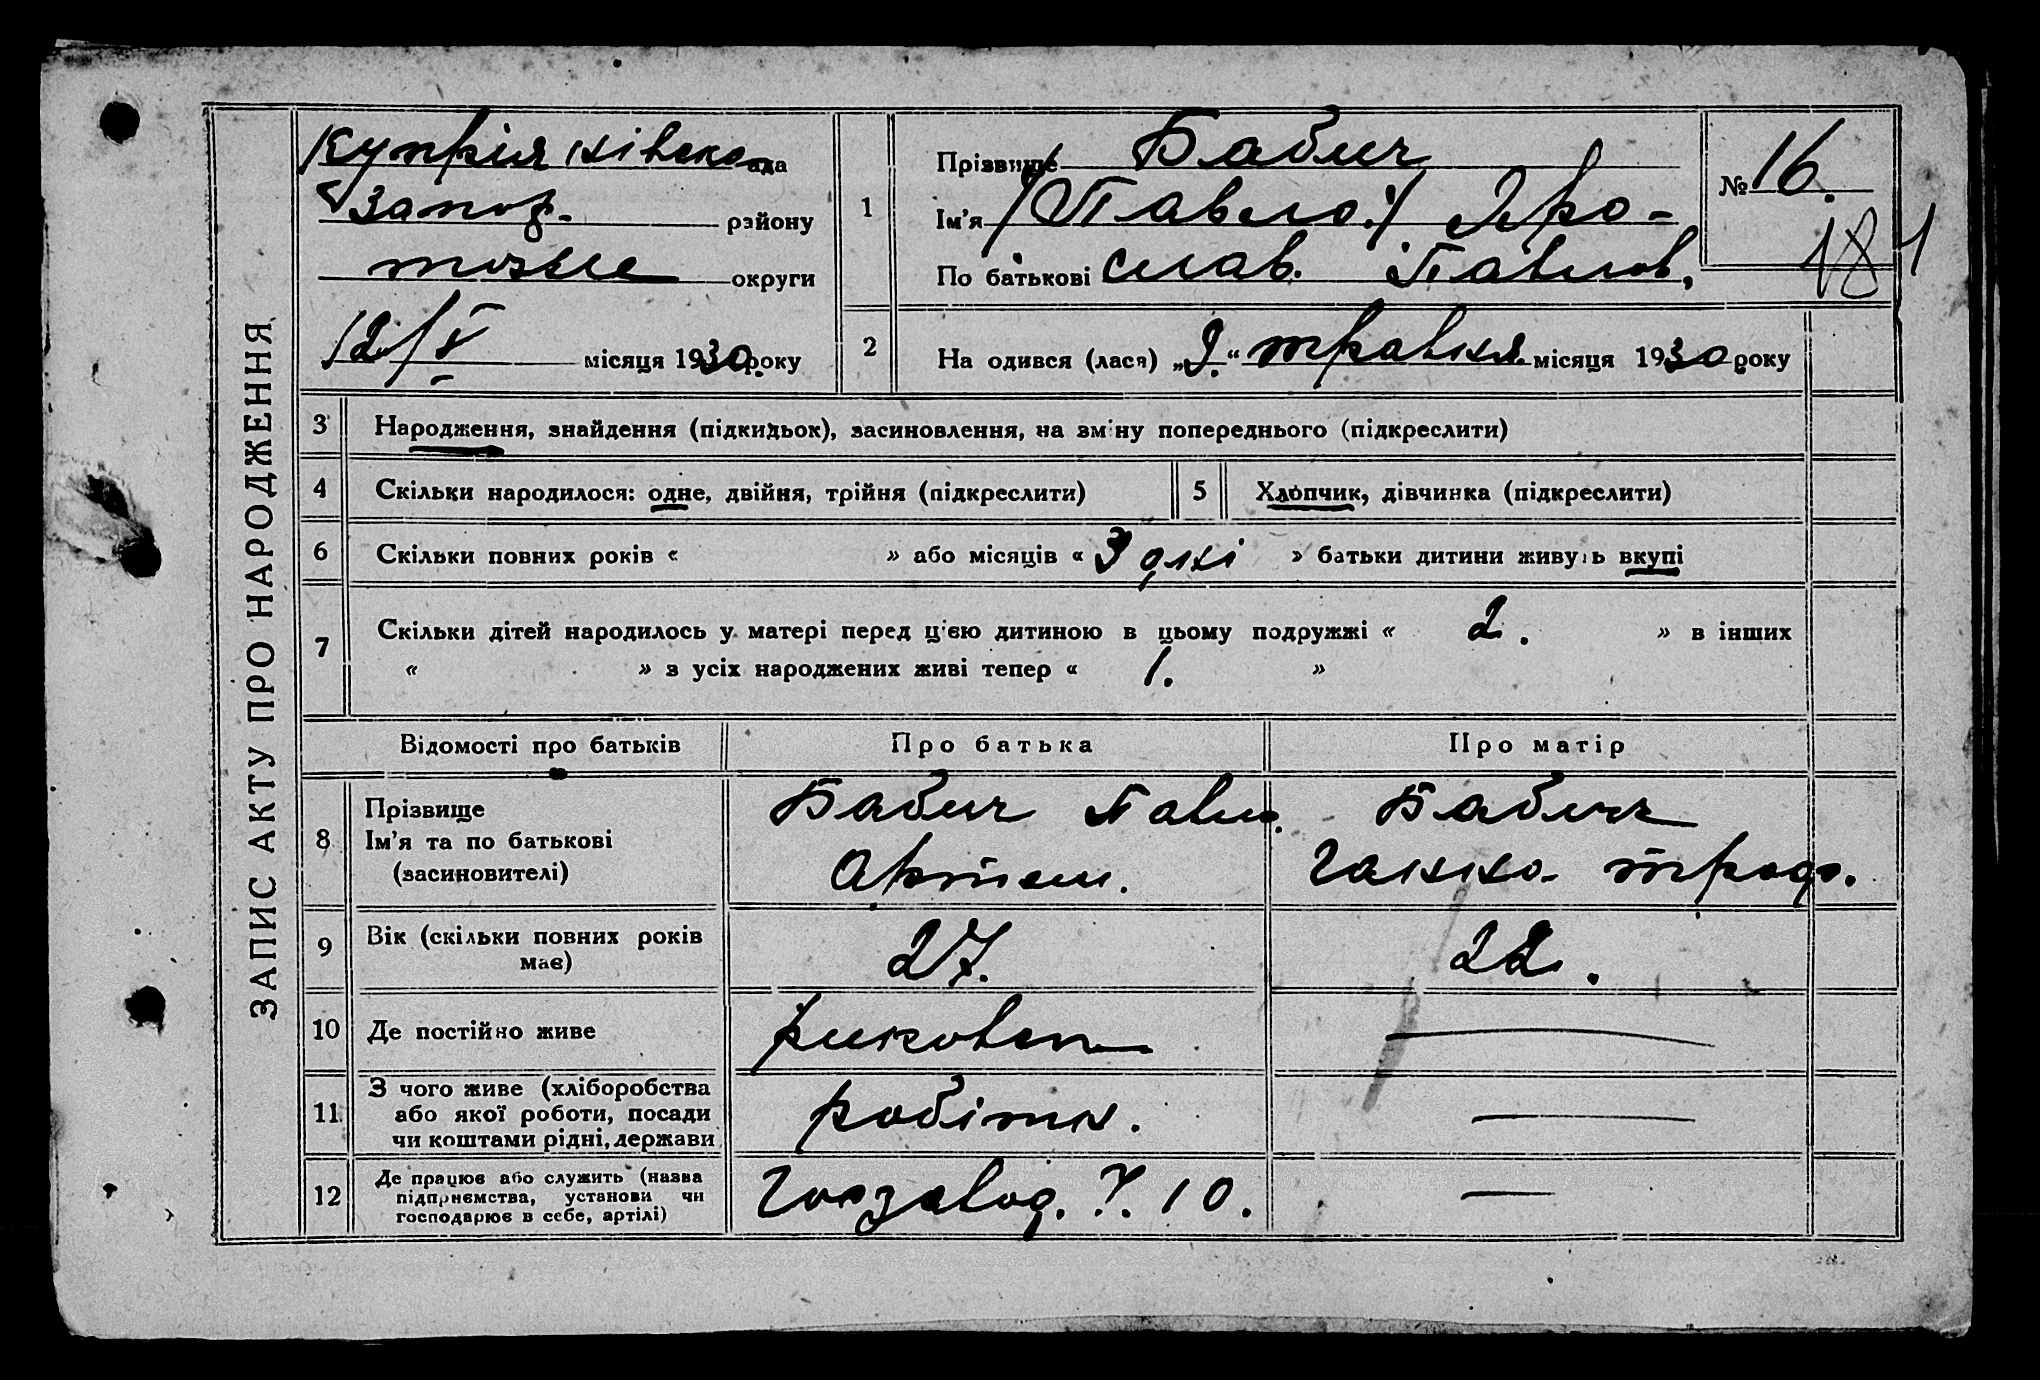 ЗАПИС АКТУ ПРО НАРОДЖЕННЯ
Купріянівська ада
Запор. району
тоже округи
12/V місяця 1930. року
1
Прізвище Бабич
Ім'я /Павло/ Яро-
По батькові слав. Павлов,
№ 16.
181
2 На одився (лася) „9.“ травня місяця 1930 року
3 Народження, знайдення (підкидьок), засиновлення, на зміну попереднього (підкреслити)
4 Скільки народилося: одне, двійня, трійня (підкреслити) 5 Хлопчик, дівчинка (підкреслити)
6 Скільки повних років « » або місяців « 3 дні » батьки дитини живуть вкупі
7 Скільки дітей народилось у матері перед цією дитиною в цьому подружжі « 2. » в інших
« » з усіх народжених живі тепер « 1. »
Відомості про батьків Про батька Про матір
8 Прізвище
Ім'я та по батькові
(засиновителі)
Бабич Павло.
Артем.
Бабич
Ганна
9 Вік (скільки повних років
має)
27. 22.
10 Де постійно живе
11 З чого живе (хліборобства
або якої роботи, посади
чи коштами рідні, держави
робітн.
12 Де працює або служить (назва
підприємства, установи чи
господарює в себе, артілі)
10.